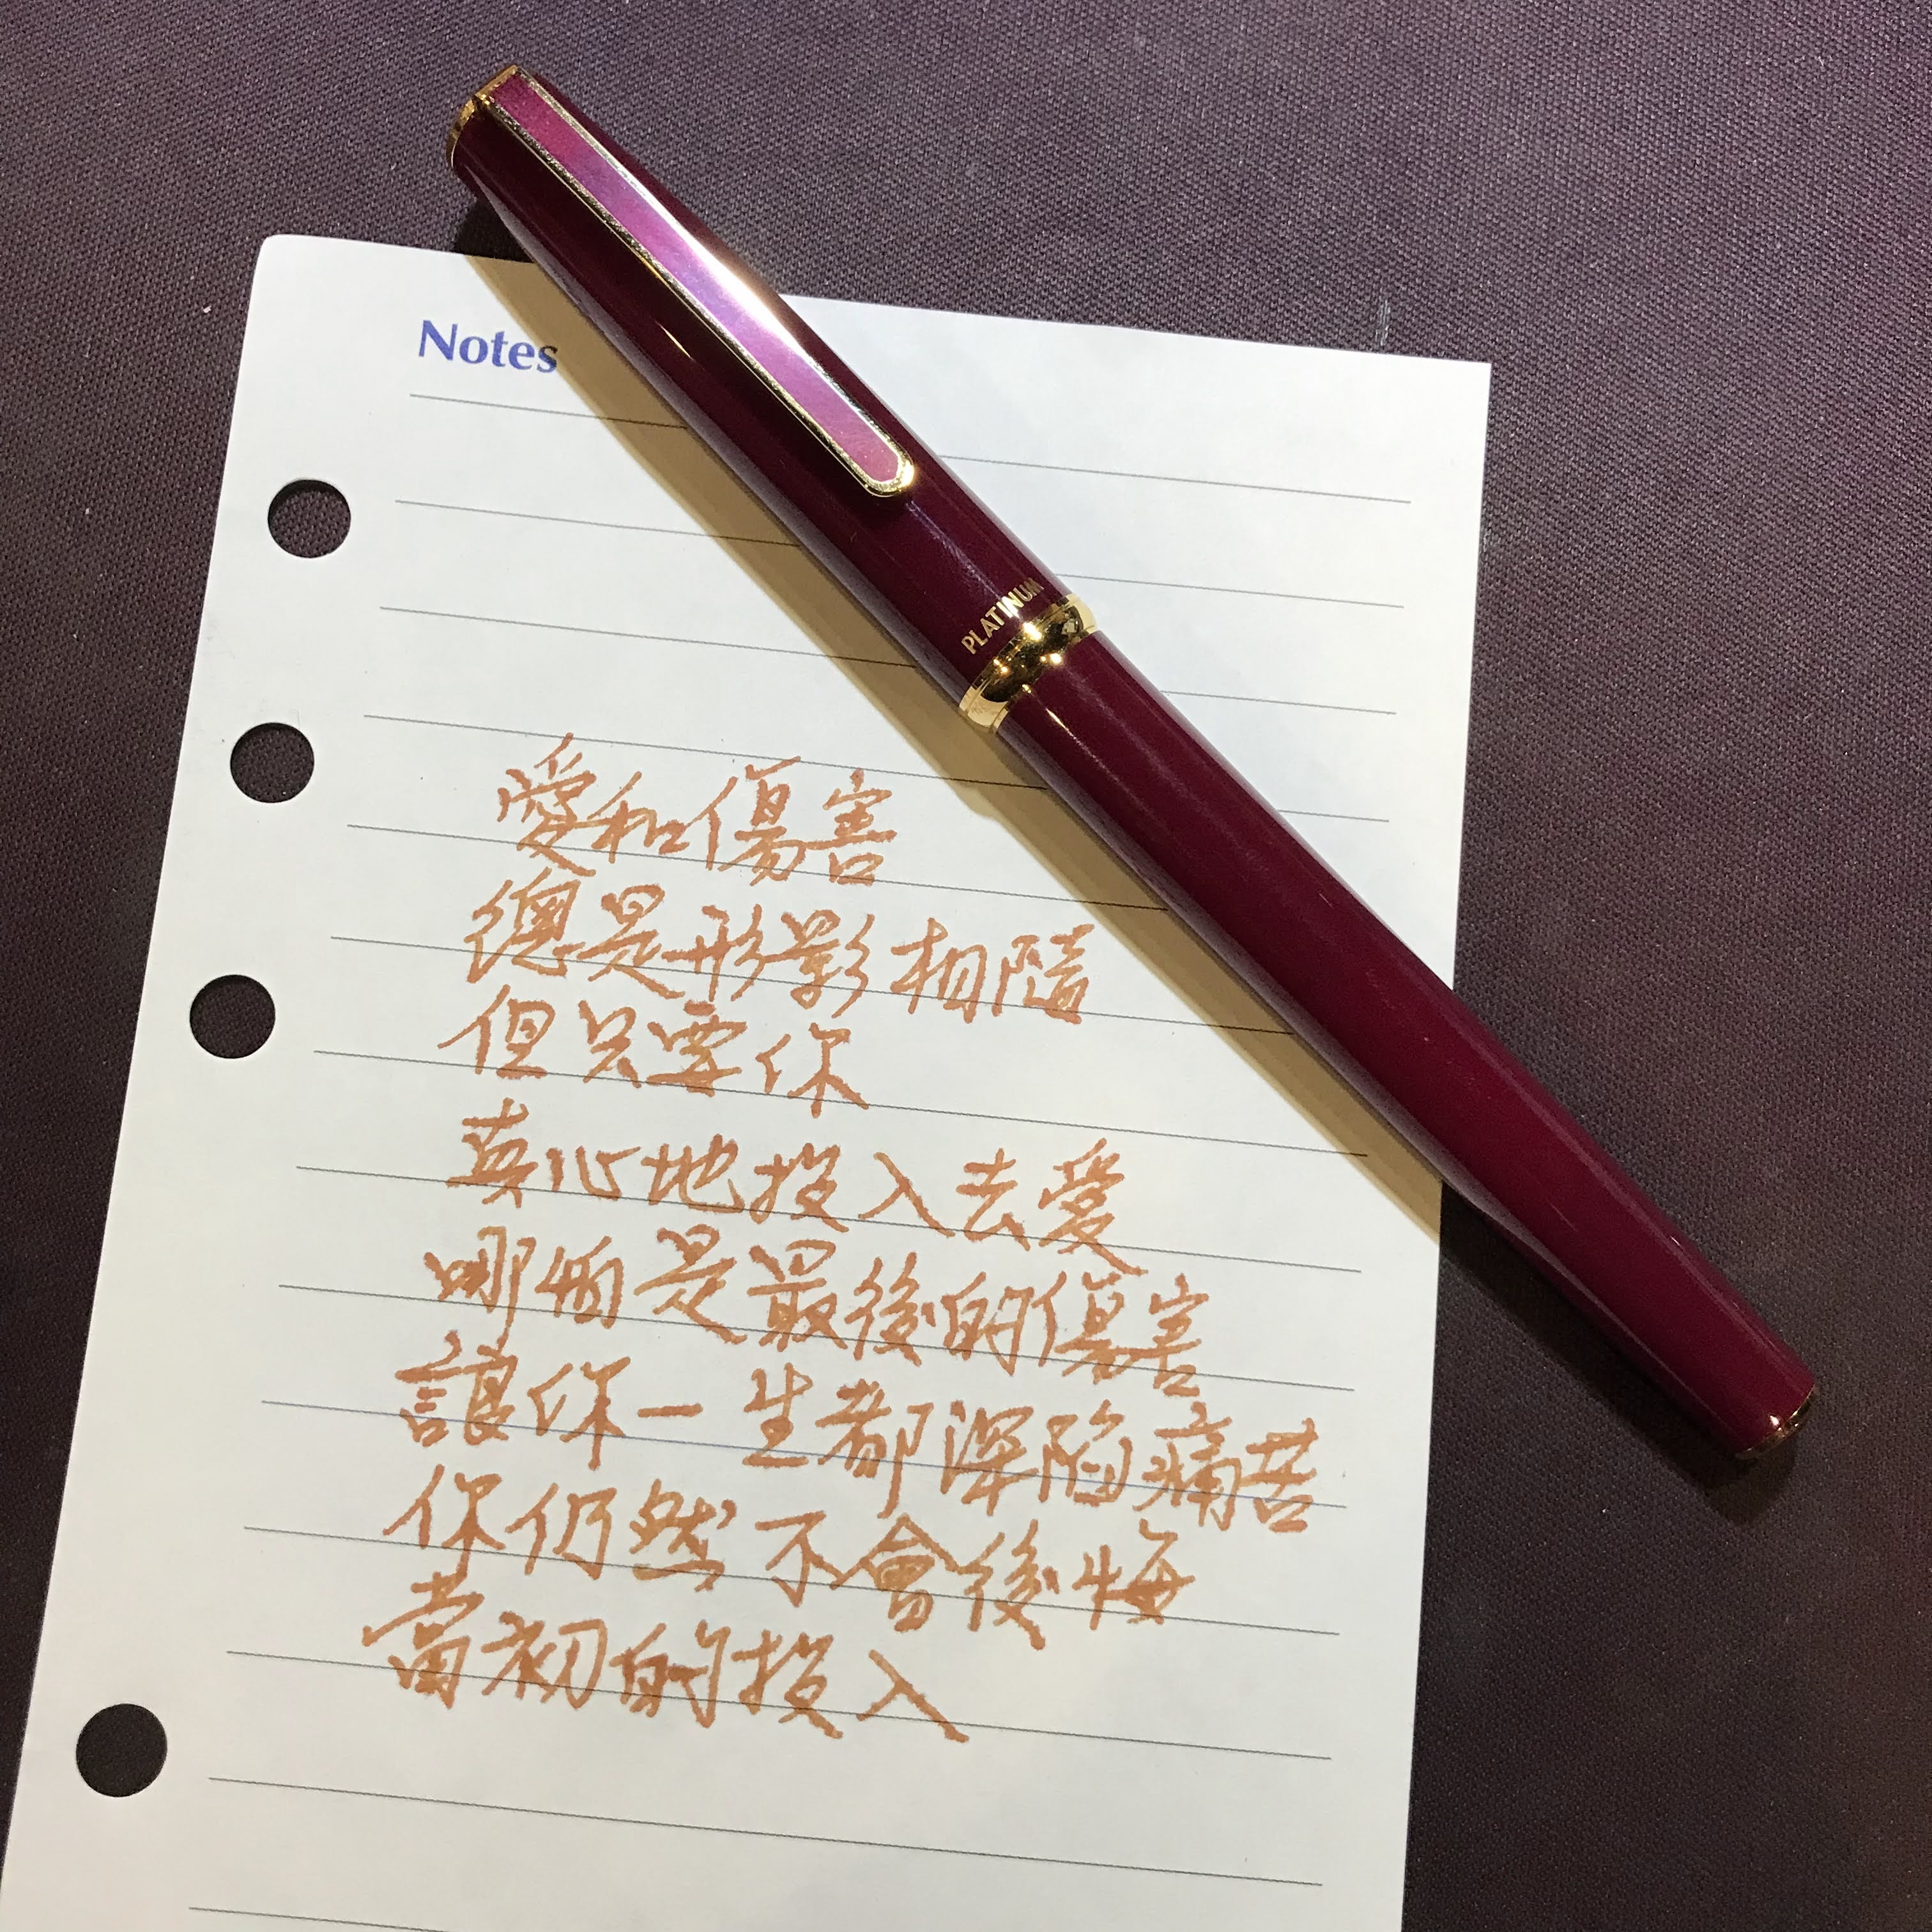 Notes
PLATINUM
愛和傷害
總是形影相隨
但只要你
真心地投入去愛
哪怕是最後的傷害
讓你一生都深陷痛苦
你仍然不會後悔
當初的投入